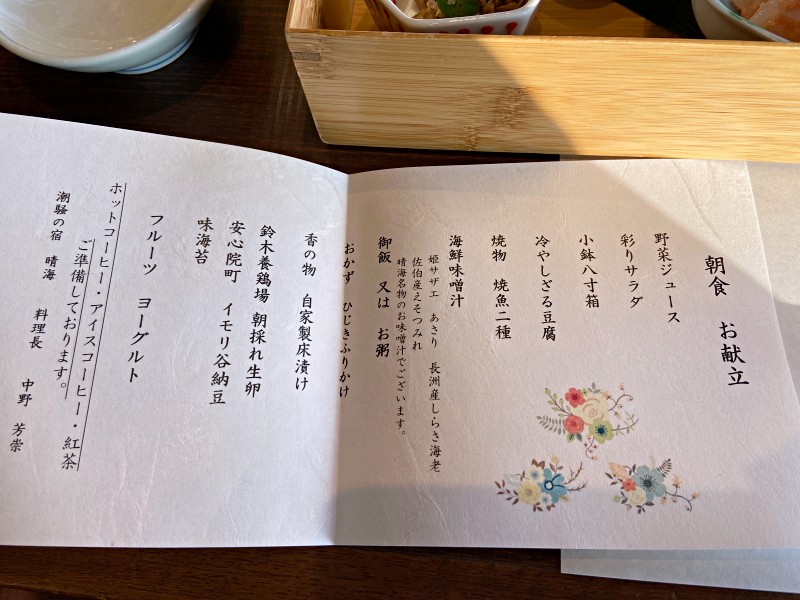 朝食　お献立
野菜ジュース
彩りサラダ
小鉢八寸箱
冷やしざる豆腐
焼物　焼魚二種
海鮮味噌汁
姫サザエ　あさり　長洲産しらさ海老
佐伯産えそつみれ
晴海名物のお味噌汁でございます。
御飯　又は　お粥
おかず　ひじきふりかけ
香の物　自家製床漬け
鈴木養鶏場　朝採れ生卵
安心院町　イモリ谷納豆
味海苔
フルーツ　ヨーグルト
ホットコーヒー・アイスコーヒー・紅茶
ご準備しております。
潮騒の宿　晴海　料理長　中野　芳崇